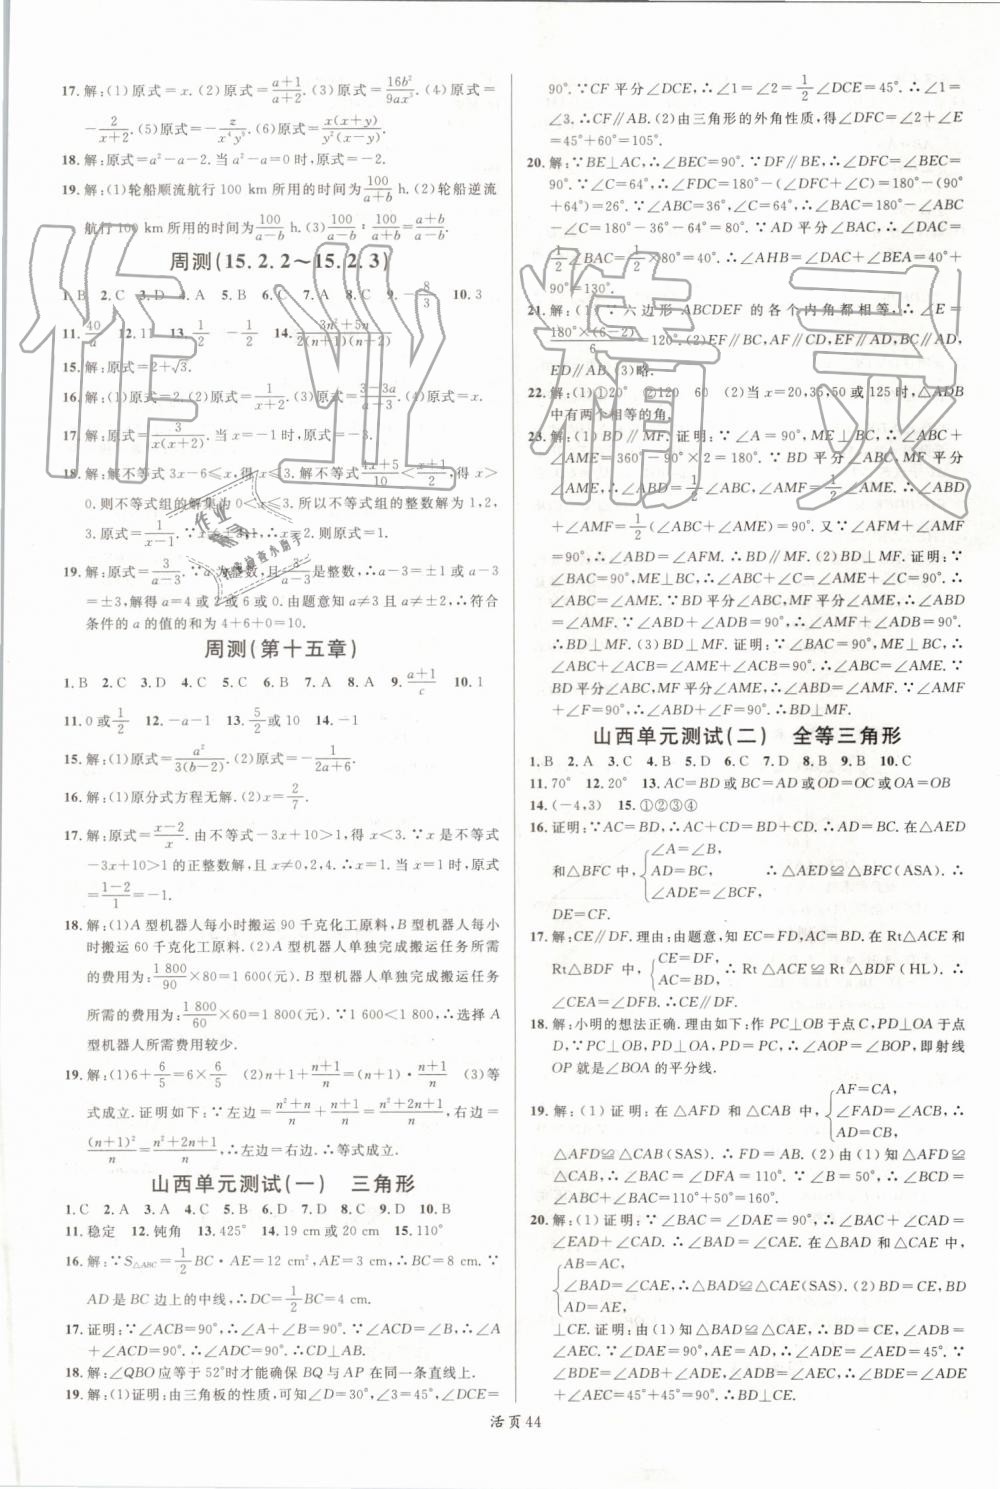 17. 解:(1)原式=x. (2)原式=(a+1)/(a+2). (3)原式=16b²/9ax³. (4)原式=
-2/(x+2). (5)原式=-z/(x⁴y³). (6)原式=x(x+y)/(y²(x-y)).
18. 解:原式=a²-a-2. 当a²-a=0时,原式=-2.
19. 解:(1)轮船顺流航行100 km所用的时间为100/(a+b) h. (2)轮船逆流
航行100 km所用的时间为100/(a-b) h. (3)100/(a-b) : 100/(a+b) = (a+b)/(a-b).
周测(15.2.2~15.2.3)
1. B 2. C 3. D 4. A 5. B 6. C 7. A 8. C 9. -8/3 10. 3
11. 40/a 12. 11 13. 1/2 -1/2 14. (3n²+5n)/(2(n+1)(n+2))
15. 解:原式=2+√3.
16. 解:(1)原式=2. (2)原式=1/(x+2). (3)原式=(3-3a)/(a+3). (4)原式=x.
17. 解:原式=3/(x(x+2)). 当x=-1时,原式=-3.
18. 解:解不等式3x-6≤x,得x≤3. 解不等式(4x+5)/10<(x+1)/2,得x>
0. 则不等式组的解集为0<x≤3. 所以不等式组的整数解为1,2,
3. 原式=1/(x-1). ∵x≠±3,1,∴x=2. 原式=1.
19. 解:原式=3/(a-3). ∵a为整数,且3/(a-3)是整数,∴a-3=±1或a-3
=±3,解得a=4或2或6或0. 由题意知a≠3且a≠±2,∴符合
条件的a的值的和为4+6+0=10.
周测(第十五章)
1. B 2. C 3. D 4. C 5. C 6. B 7. A 8. A 9. (a+1)/c 10. 1
11. 0或1/2 12. -a-1 13. 5/2或10 14. -1
15. 解:(1)原式=a²/(3(b-2)). (2)原式=-1/(2a+6).
16. 解:(1)原分式方程无解. (2)x=2/7.
17. 解:原式=(x-2)/x. 由不等式-3x+10>1,得x<3. ∵x是不等式
-3x+10>1的正整数解,且x≠0,2,4. ∴x=1. 当x=1时,原式=
(1-2)/1=-1.
18. 解:(1)A型机器人每小时搬运90千克化工原料,B型机器人每小
时搬运60千克化工原料. (2)A型机器人单独完成搬运任务所需
的费用为:1 800/90×80=1 600(元). B型机器人单独完成搬运任务
所需的费用为:1 800/60×60=1 800(元). ∵1 600<1 800,∴选择A
型机器人所需费用较少.
19. 解:(1)6+6/5=6×6/5 (2)n+1+(n+1)/n=(n+1)·(n+1)/n (3)等
式成立. 证明如下:∵左边=(n²+n)/n+(n+1)/n=(n²+2n+1)/n,右边=
(n+1)²/n=(n²+2n+1)/n,∴左边=右边. ∴等式成立.
山西单元测试(一) 三角形
1. C 2. A 3. A 4. C 5. B 6. D 7. D 8. B 9. C 10. B
11. 稳定 12. 钝角 13. 425° 14. 19 cm或20 cm 15. 110°
16. 解:∵S△ABC=1/2BC·AE=12 cm²,AE=3 cm,∴BC=8 cm. ∵
AD是BC边上的中线,∴DC=1/2BC=4 cm.
17. 证明:∵∠ACB=90°,∴∠A+∠B=90°. ∵∠ACD=∠B,∴∠A
+∠ACD=90°. ∴∠ADC=90°. ∴CD⊥AB.
18. 解:∠QBO应等于52°时才能确保BQ与AP在同一条直线上.
19. 解:(1)证明:由三角板的性质,可知∠D=30°,∠3=45°,∠DCE=
90°. ∵CF平分∠DCE,∴∠1=∠2=1/2∠DCE=45°. ∴∠1=
∠3. ∴CF∥AB. (2)由三角形的外角性质,得∠DFC=∠2+∠E
=45°+60°=105°.
20. 解:∵BE⊥AC,∴∠BEC=90°. ∵DF∥BE,∴∠DFC=∠BEC=
90°. ∵∠C=64°,∴∠FDC=180°-(∠DFC+∠C)=180°-(90°
+64°)=26°. ∵∠ABC=36°,∠C=64°,∴∠BAC=180°-∠C-
∠ABC=180°-36°-64°=80°. ∵AD平分∠BAC,∴∠DAC=
1/2∠BAC=1/2×80°=40°. ∴∠AHB=∠DAC+∠BEA=40°+
90°=130°.
21. 解:(1)∵六边形ABCDEF的各个内角都相等,∴∠E=
180°×(6-2)/6=120°. (2)EF∥BC,AF∥CD,EF∥AD,BC∥AD,
ED∥AB. (3)略.
22. 解:(1)①20° ②120 60 (2)当x=20,35,50或125时,△ADB
中有两个相等的角.
23. 解:(1)BD∥MF. 证明:∵∠A=90°,ME⊥BC,∴∠ABC+
∠AME=360°-90°×2=180°. ∵BD平分∠ABC,MF平分
∠AME,∴∠ABD=1/2∠ABC,∠AMF=1/2∠AME. ∴∠ABD
+∠AMF=1/2(∠ABC+∠AME)=90°. 又∵∠AFM+∠AMF
=90°,∴∠ABD=∠AFM. ∴BD∥MF. (2)BD⊥MF. 证明:∵
∠BAC=90°,ME⊥BC,∴∠ABC+∠C=∠AME+∠C=90°.
∴∠ABC=∠AME. ∵BD平分∠ABC,MF平分∠AME,∴∠ABD
=∠AMF. ∵∠ABD+∠ADB=90°,∴∠AMF+∠ADB=90°.
∴BD⊥MF. (3)BD⊥MF. 证明:∵∠BAC=90°,ME⊥BC,∴
∠ABC+∠ACB=∠AME+∠ACB=90°. ∴∠ABC=∠AME. ∵
BD平分∠ABC,MF平分∠AME,∴∠ABD=∠AMF. ∵∠AMF
+∠F=90°,∴∠ABD+∠F=90°. ∴BD⊥MF.
山西单元测试(二) 全等三角形
1. B 2. A 3. C 4. B 5. D 6. C 7. D 8. B 9. B 10. C
11. 70° 12. 20° 13. AC=BD或BC=AD或OD=OC或OA=OB
14. (-4,3) 15. ①②③④
16. 证明:∵AC=BD,∴AC+CD=BD+CD. ∴AD=BC. 在△AED
和△BFC中, {∠A=∠B, AD=BC, ∠ADE=∠BCF, ∴△AED≌△BFC(ASA). ∴
DE=CF.
17. 解:CE∥DF. 理由:由题意,知EC=FD,AC=BD. 在Rt△ACE和
Rt△BDF中, {CE=DF, AC=BD, ∴Rt△ACE≌Rt△BDF(HL). ∴
∠CEA=∠DFB. ∴CE∥DF.
18. 解:小明的想法正确. 理由如下:作PC⊥OB于点C,PD⊥OA于点
D,∵PC⊥OB,PD⊥OA,PC=PD,∴∠AOP=∠BOP,即射线
OP就是∠BOA的平分线.
19. 解:(1)证明:在△AFD和△CAB中, {AF=CA, ∠FAD=∠ACB, AD=CB, ∴
△AFD≌△CAB(SAS). ∴FD=AB. (2)由(1)知△AFD≌
△CAB,∴∠BAC=∠DFA=110°. ∵∠B=50°,∴∠BCD=
∠ABC+∠BAC=110°+50°=160°.
20. 解:(1)证明:∵∠BAC=∠DAE=90°,∴∠BAC+∠CAD=
∠EAD+∠CAD. ∴∠BAD=∠CAE. 在△BAD和△CAE中,
{AB=AC, ∠BAD=∠CAE, AD=AE, ∴△BAD≌△CAE(SAS). (2)BD=CE,BD
⊥CE. 证明:由(1)知△BAD≌△CAE,∴BD=CE,∠ADB=
∠AEC. ∵∠DAE=90°,AE=AD,∴∠ADE=∠AED=45°. ∵
∠BDE=∠ADB+∠ADE,∠ADB=∠AEC,∴∠BDE=∠ADE
+∠AEC=45°+45°=90°. ∴BD⊥CE.
活页44